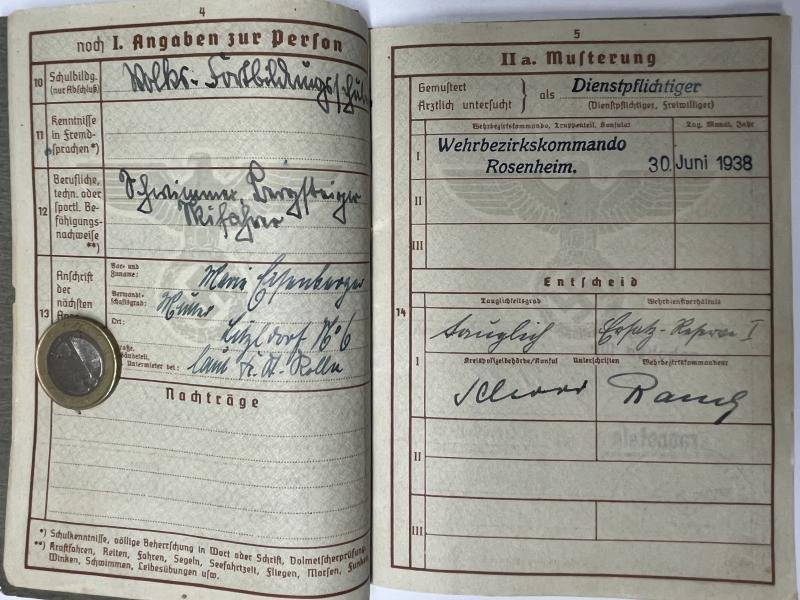 4
noch I. Angaben zur Person
10
Schulbildg.
(nur Abschluß)
Volks- Fortbildungsschule
11
Kenntnisse
in Fremd-
sprachen*)
12
Berufliche,
techn. oder
sportl. Be-
fähigungs-
nachweise
**)
Schwimmer, Bergsteiger
Skifahrer
13
Anschrift
der
nächsten
Vor- und
Zuname:
Maria
Verwandt-
schaftsgrad:
Mutter
Ort:
Litzldorf No 6
Untermieter bei:
Nachträge
*) Schulkenntnisse, völlige Beherrschung in Wort oder Schrift, Dolmetscherprüfung.
**) Kraftfahren, Reiten, Fahren, Segeln, Seefahrtzeit, Fliegen, Morsen,
Winken, Schwimmen, Leibesübungen usw.
5
II a. Musterung
Gemustert
Ärztlich untersucht } als Dienstpflichtiger
(Dienstpflichtiger, Freiwilliger)
Wehrbezirkskommando, Truppenteil, Konsulat
Tag, Monat, Jahr
I
Wehrbezirkskommando
Rosenheim.
30. Juni 1938
II
III
Entscheid
14
Tauglichkeitsgrad
Wehrdienstverhältnis
I
tauglich
Ersatz-Reserve I
Kreispolizeibehörde/Konsul Unterschriften Wehrbezirkskommandeur
II
III